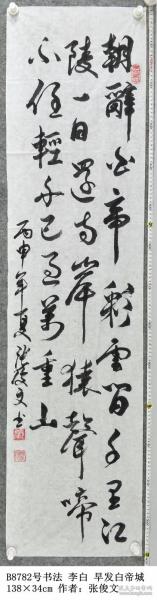 朝辭白帝彩雲間千里江
陵一日還両岸猿聲啼
不住輕舟已過萬重山
丙申年夏張俊文書
B8782号书法 李白 早发白帝城
138×34cm 作者：张俊文